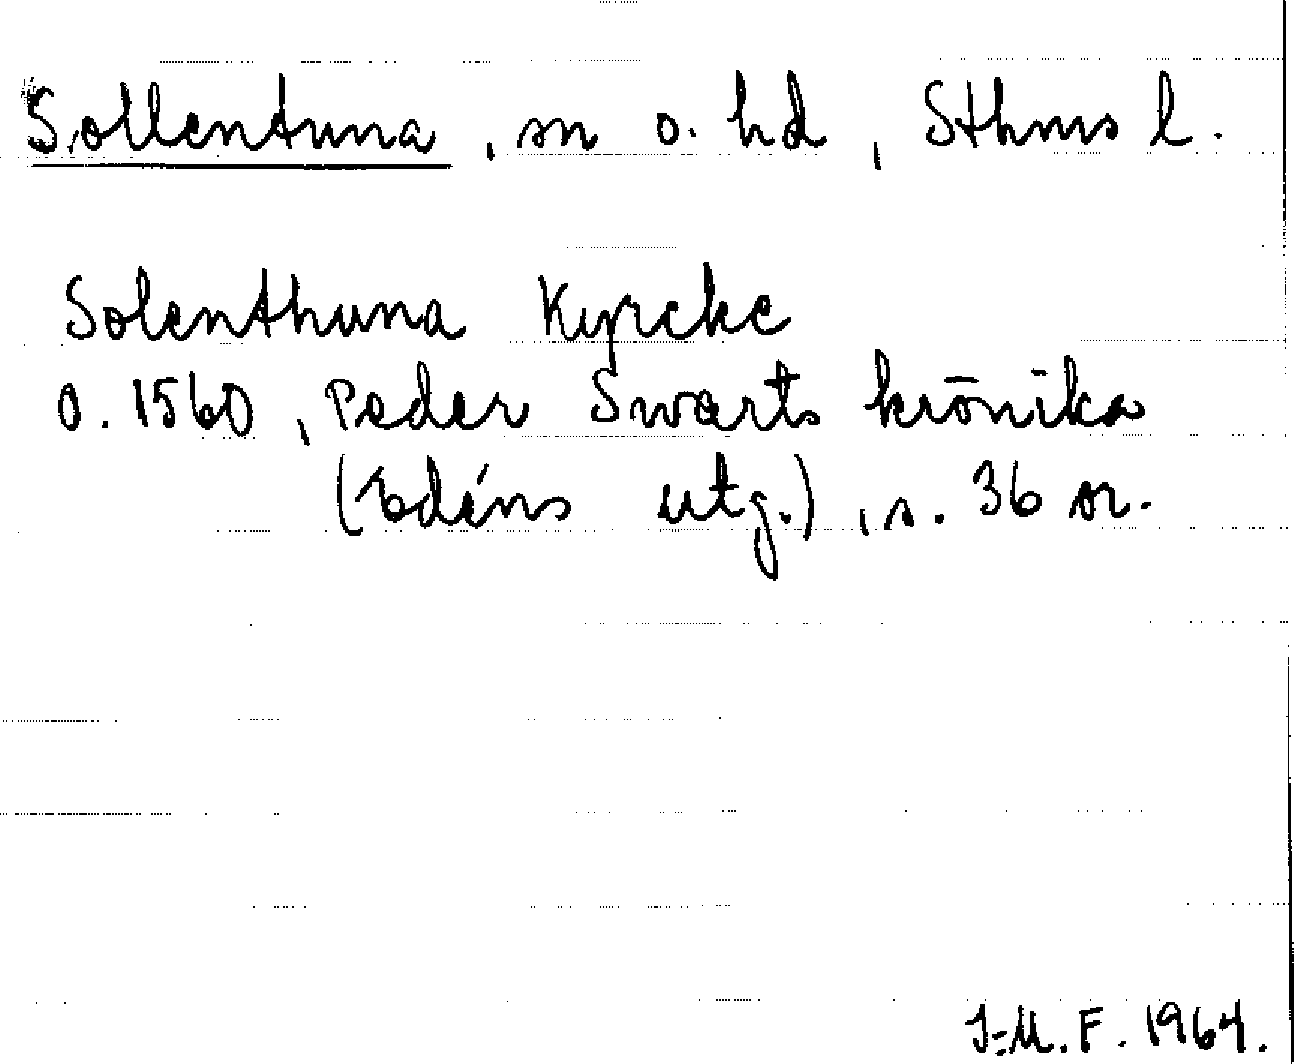 Sollentuna, sn o. hd, Sthms l.
Solenthuna Kyrcke
o. 1560, Peder Swarts krönika
(Edéns utg.), s. 36 or.
I-M. F. 1964.